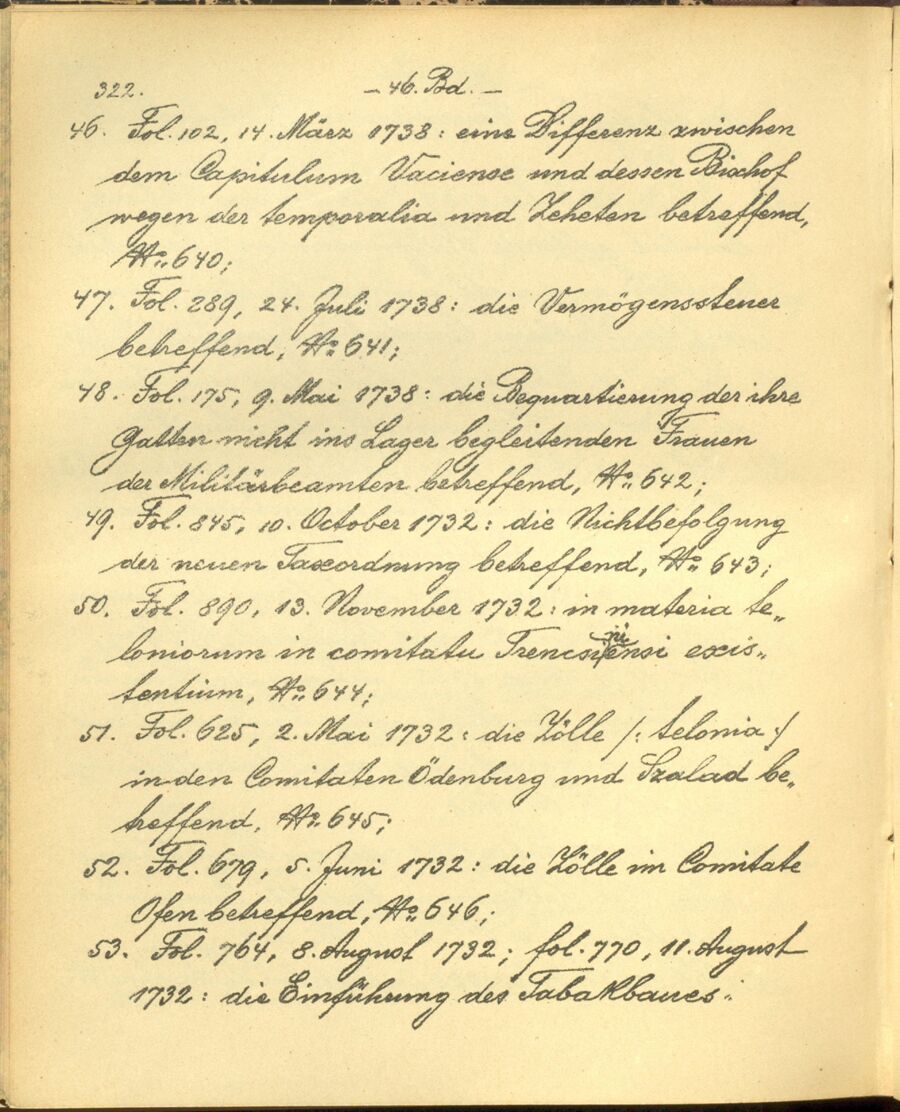 322. – 46. Bd. –
46. Fol. 102, 14. März 1738: eine Differenz zwischen
dem Capitulum Vaciense und dessen Bischof
wegen der temporalia und Zeheten betreffend,
No. 640;
47. Fol. 289, 24. Juli 1738: die Vermögenssteuer
betreffend, No. 641;
48. Fol. 175, 9. Mai 1738: die Bequartierung der ihre
Gatten nicht ins Lager begleitenden Frauen
der Militärbeamten betreffend, No. 642;
49. Fol. 845, 10. October 1732: die Nichtbefolgung
der neuen Taxordnung betreffend, No. 643;
50. Fol. 890, 13. November 1732: in materia te„
loniorum in comitatu Trencsiniensi exis„
tentium, No. 644;
51. Fol. 625, 2. Mai 1732: die Zölle /: telonia :/
in den Comitaten Ödenburg und Szalad be„
treffend, No. 645;
52. Fol. 679, 5. Juni 1732: die Zölle im Comitate
Ofen betreffend, No. 646;
53. Fol. 764, 8. August 1732; fol. 770, 11. August
1732: die Einführung des Tabakbaues.